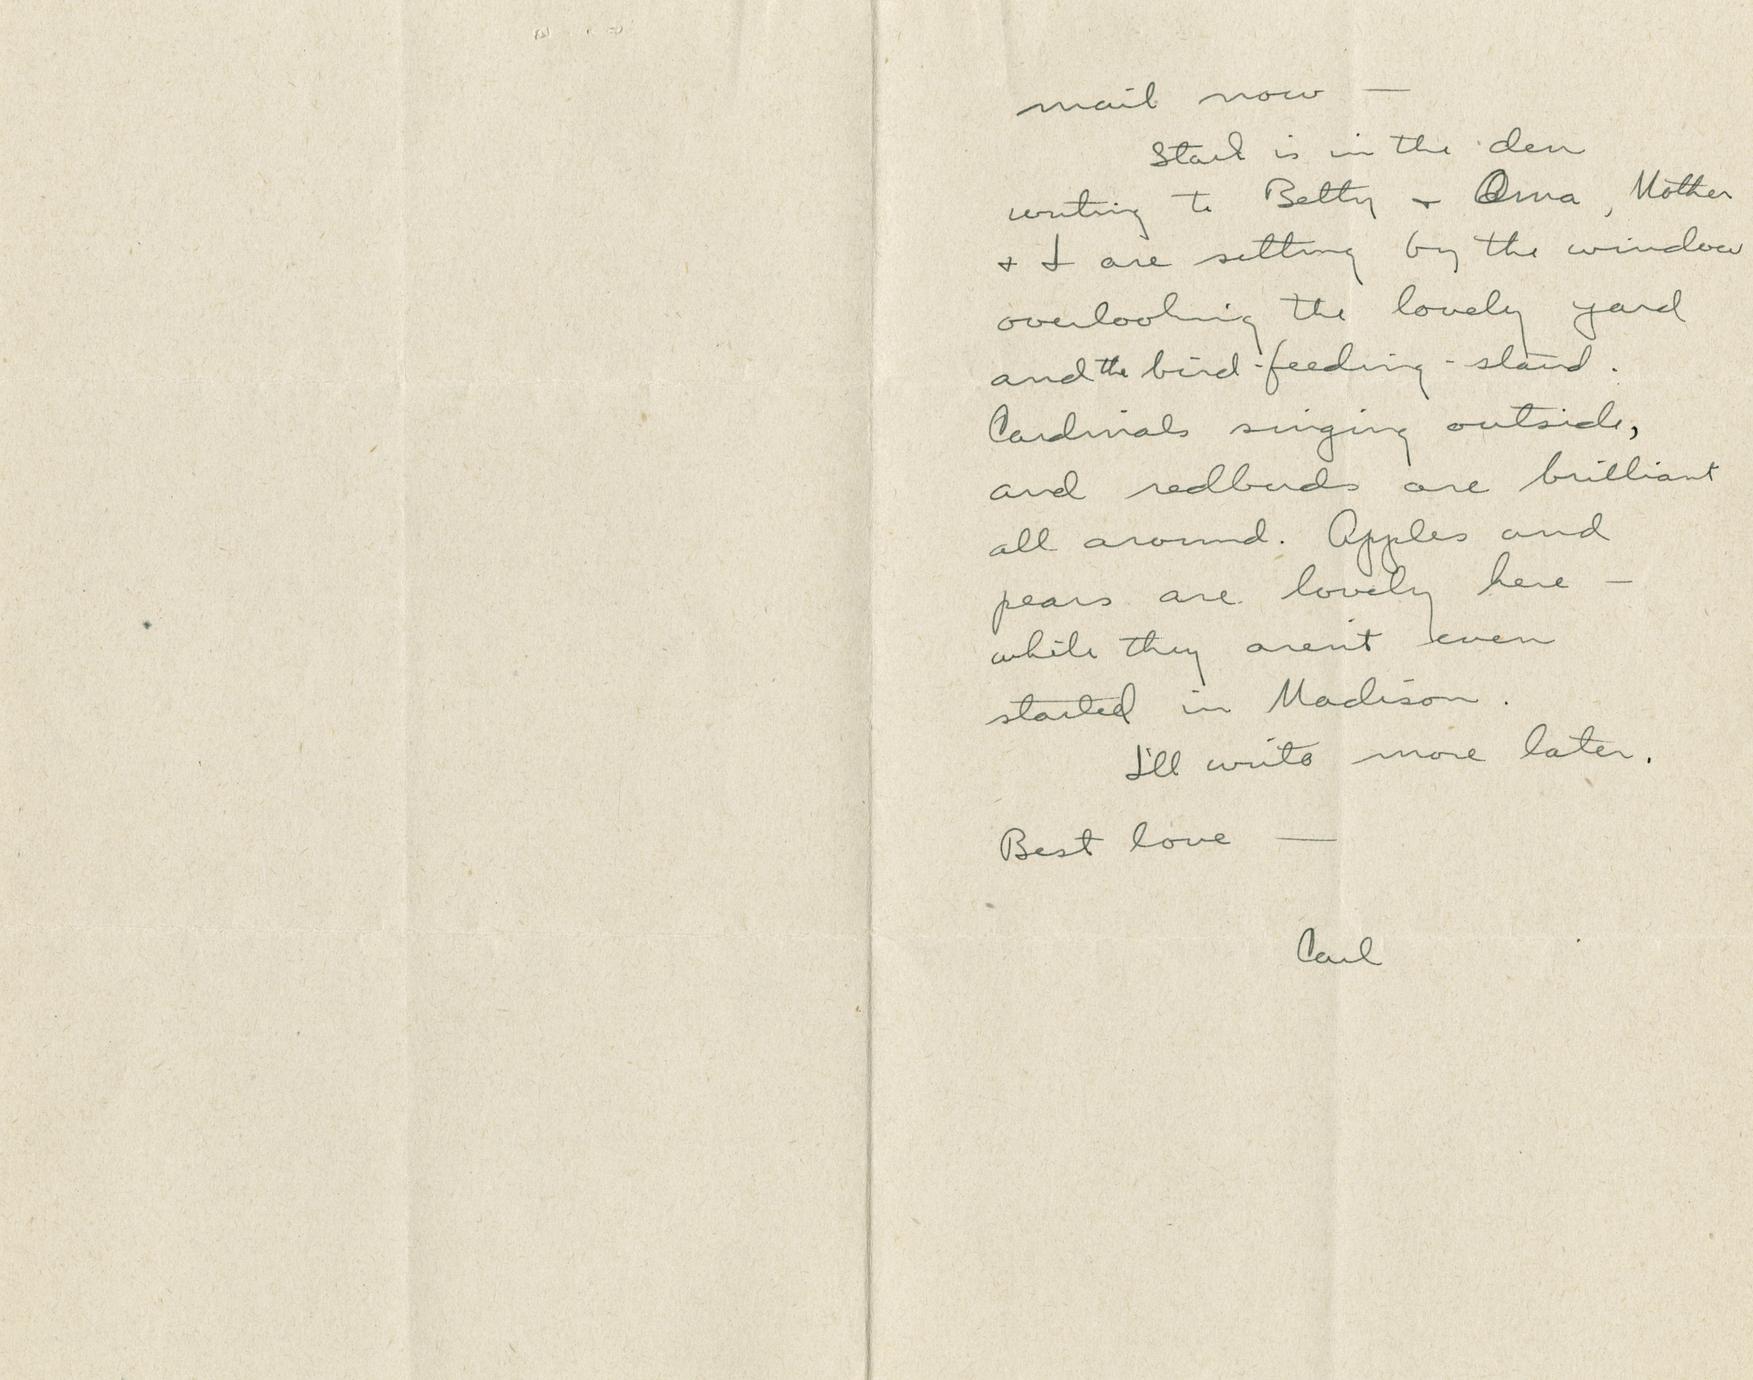 mail now —
is in the den
writing to Betty + Oma, Mother
+ I are setting by the window
overlooking the lovely yard
and the bird-feeding-stand.
Cardinals singing outside,
and redbuds are brilliant
all around. Apples and
pears are lovely here —
while they aren't even
started in Madison.
I'll write more later.
Best love —
Carl